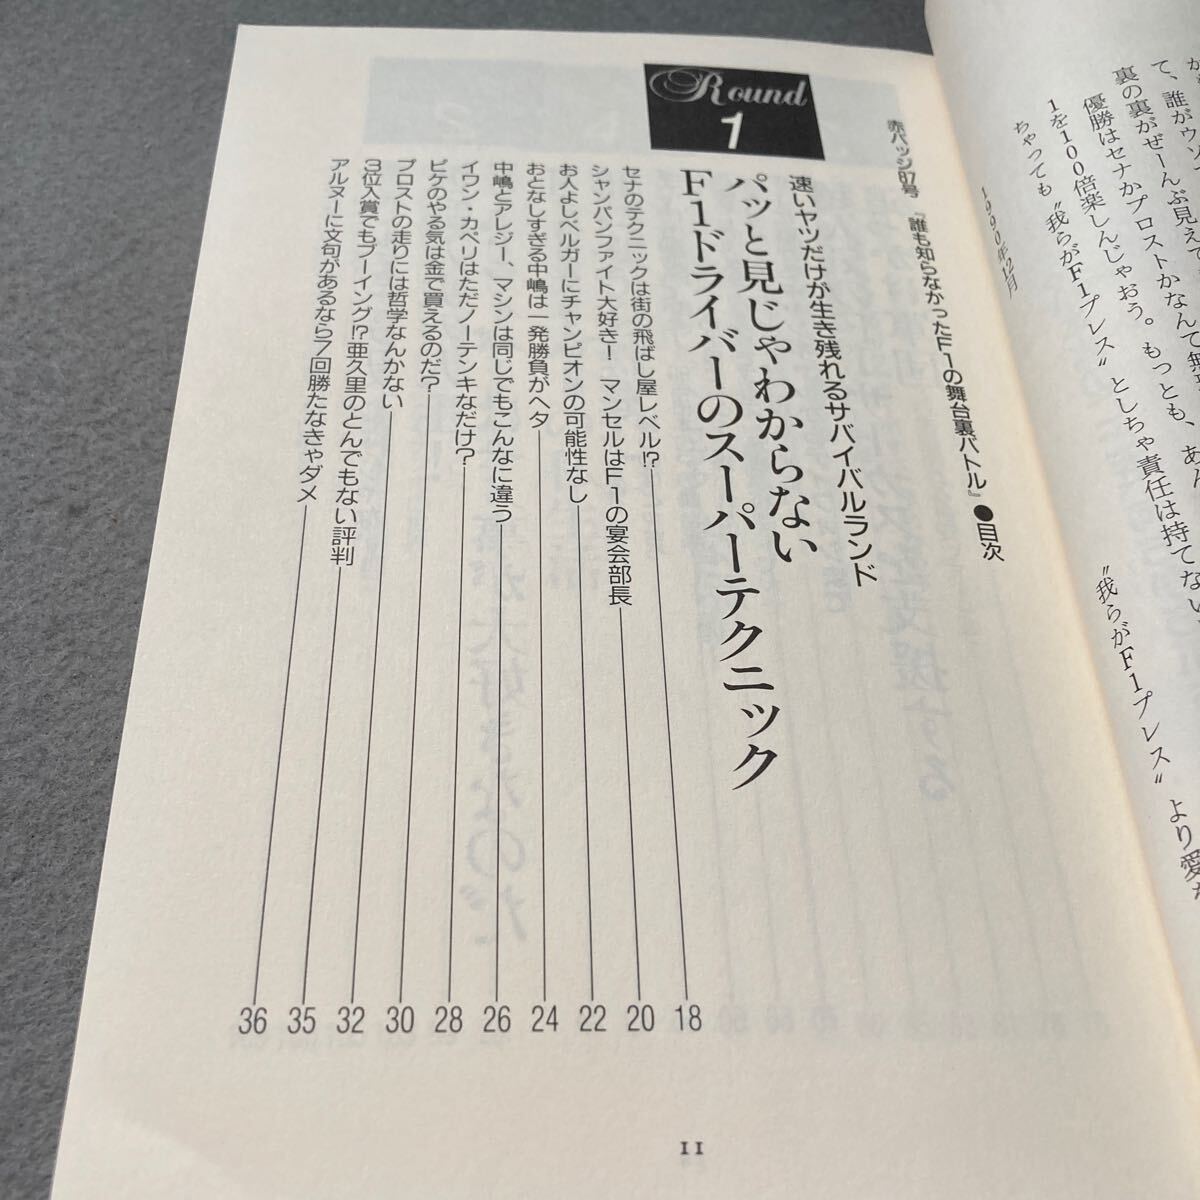 て、誰がウソ
裏の裏がぜーんぶ見えて
優勝はセナかプロストかなんて無
1を100倍楽しんじゃおう。もっとも、あん
ちゃっても〝我らがF1プレス〟としちゃ責任は持てない
1990年12月
〝我らがF1プレス〟より愛
赤バッジ87号『誰も知らなかったF1の舞台裏バトル』●目次
Round 1
速いヤツだけが生き残れるサバイバルランド
パッと見じゃわからない
F1ドライバーのスーパーテクニック
セナのテクニックは街の飛ばし屋レベル!? 18
シャンパンファイト大好き! マンセルはF1の宴会部長 20
お人よしベルガーにチャンピオンの可能性なし 22
おとなしすぎる中嶋は一発勝負がヘタ 24
中嶋とアレジー、マシンは同じでもこんなに違う 26
イワン・カペリはただノーテンキなだけ? 28
ピケのやる気は金で買えるのだ? 30
プロストの走りには哲学なんかない 32
3位入賞でもブーイング!? 亜久里のとんでもない評判 35
アルヌーに文句があるなら7回勝たなきゃダメ 36
11